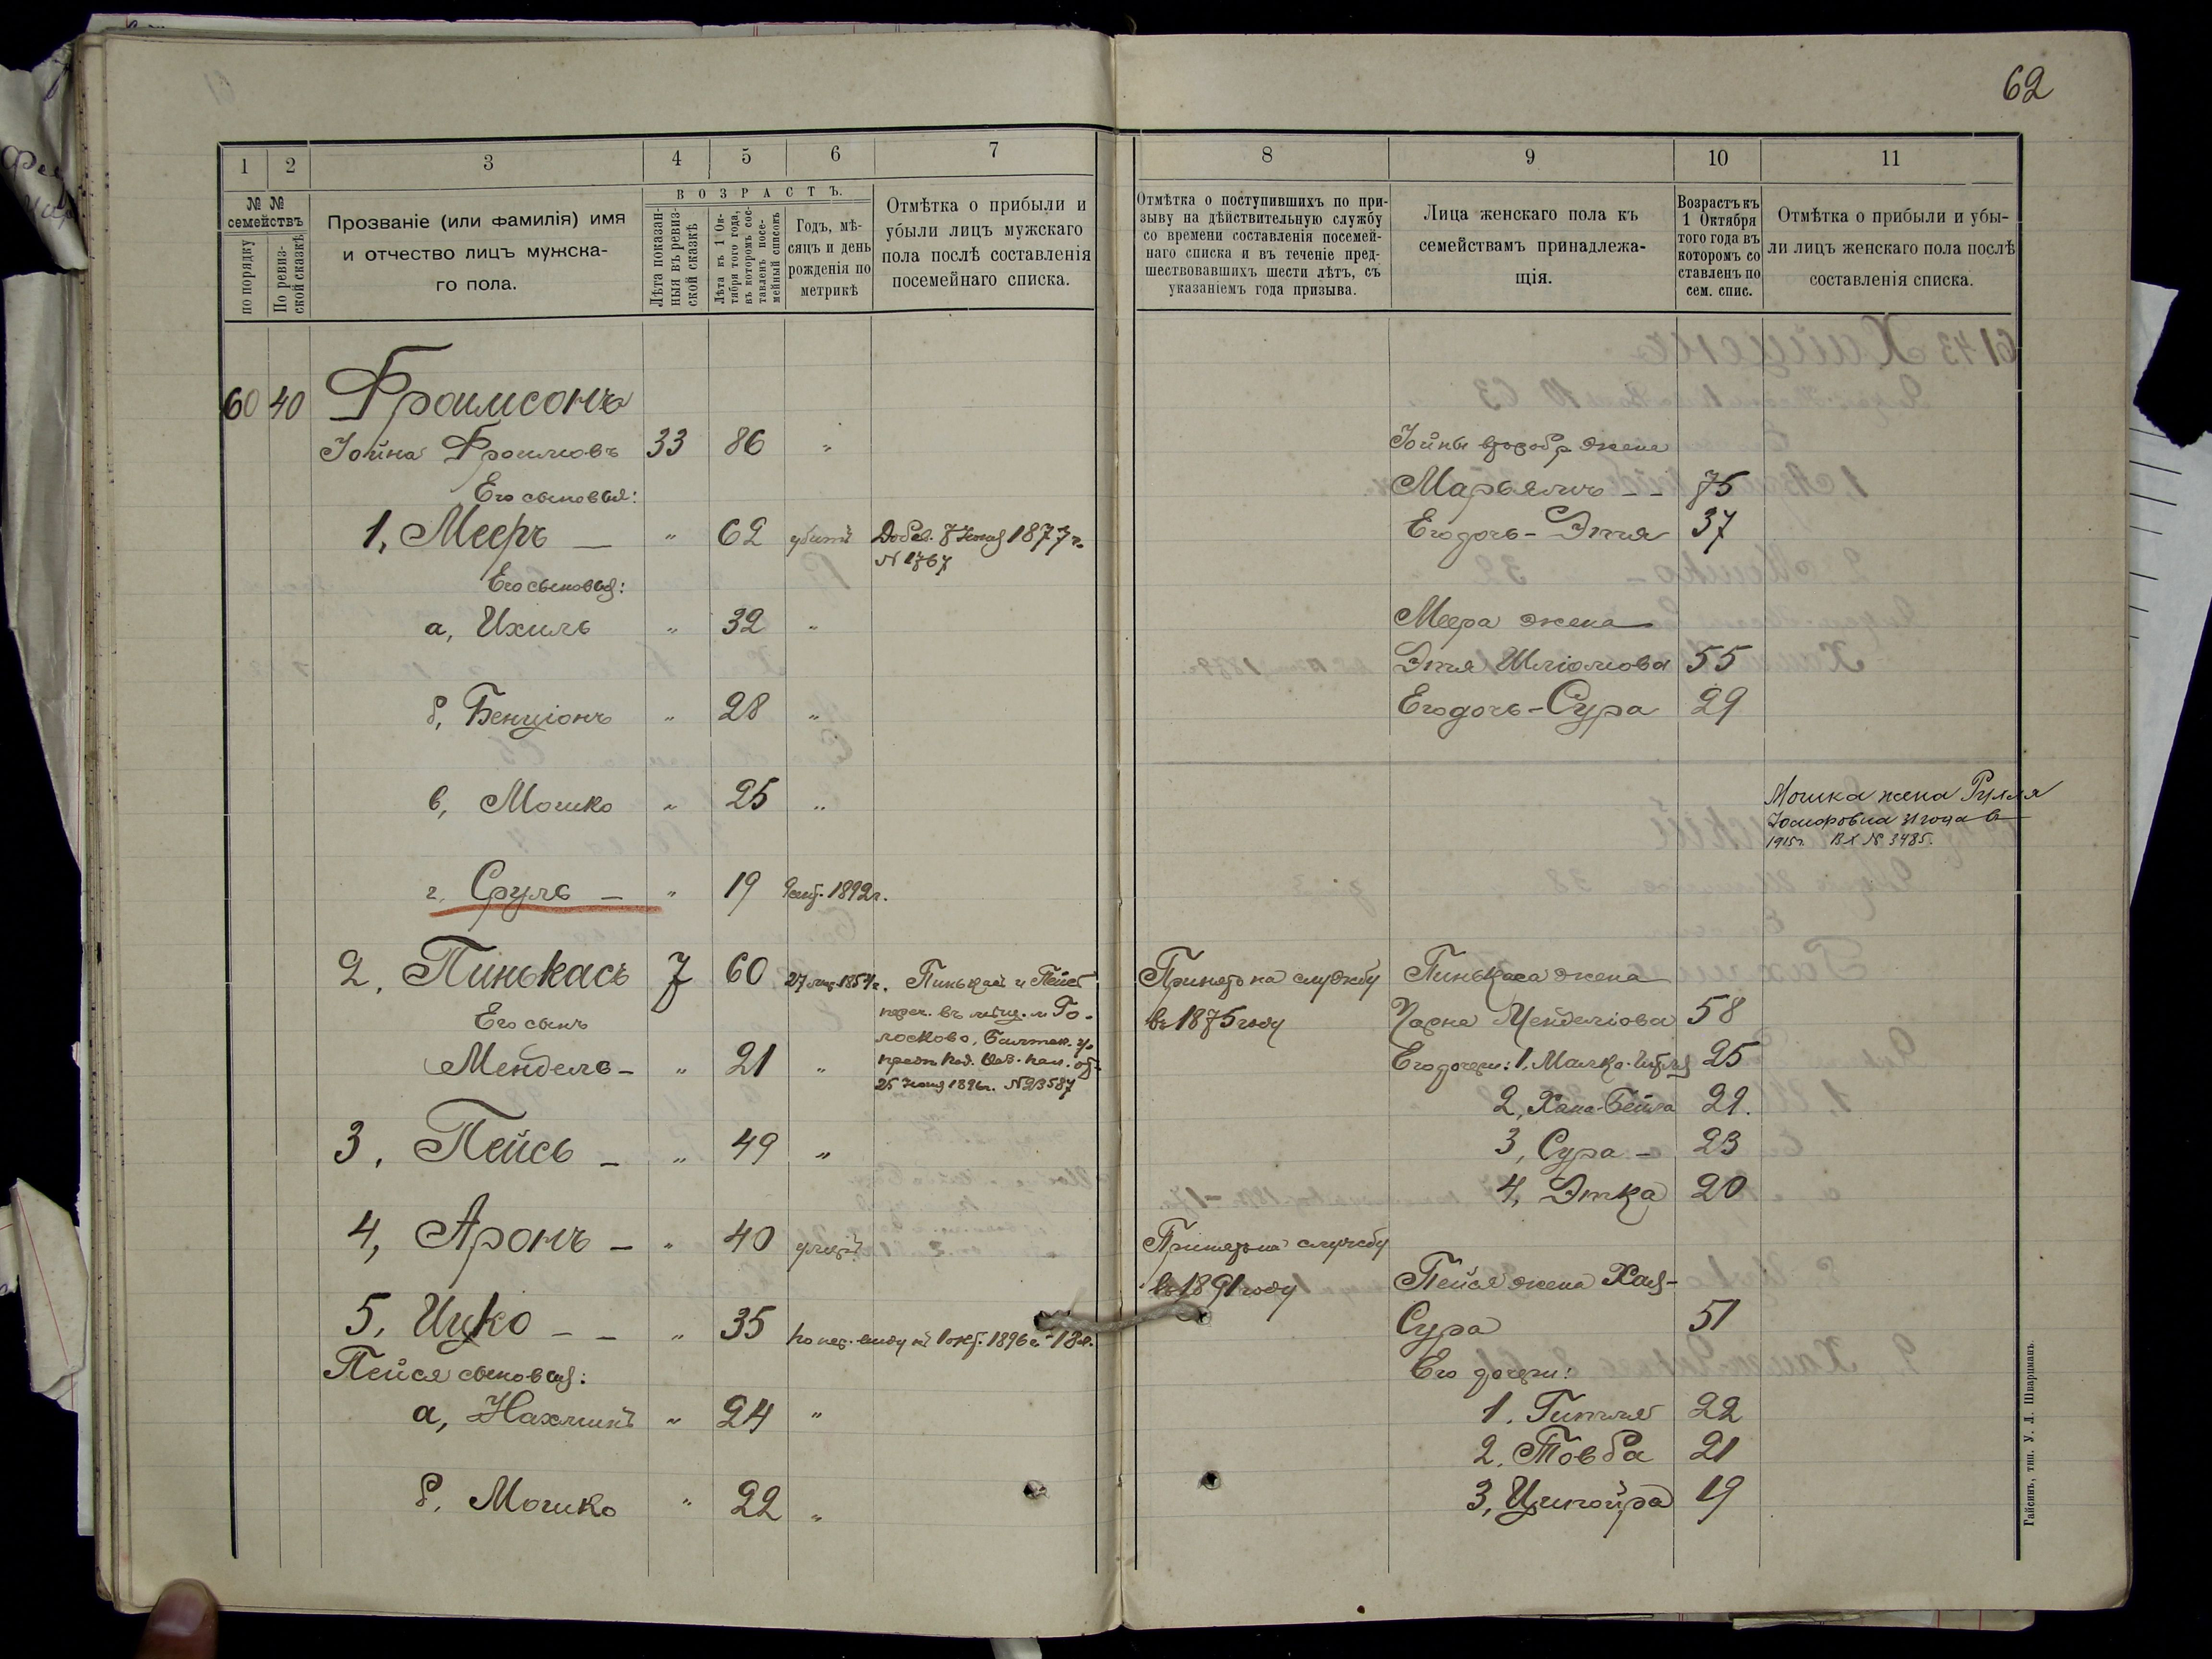 62
1 2 3 4 5 6 7
№ № семействъ
по порядку
По ревиз-
ской сказкѣ
Прозваніе (или фамилія) имя
и отчество лицъ мужска-
го пола.
ВОЗРАСТЪ.
Лѣта показан-
ныя въ ревиз-
ской сказкѣ
Лѣта къ 1 Ок-
тября того года,
въ которомъ сос-
тавленъ посе-
мейный списокъ
Годъ, мѣ-
сяцъ и день
рожденія по
метрикѣ
Отмѣтка о прибыли и
убыли лицъ мужскаго
пола послѣ составленія
посемейнаго списка.
60 40 Фроимсонъ
Іойна Фроимовъ 33 86 "
Его сыновья:
1, Мееръ — " 62 Добав. 7 1877 г.
N 1767
Его сыновья:
а, Ихиль " 32 "
б, Бенціонъ " 28 "
в, Мошко " 25 "
г, Сруль — " 19 1892 г.
2, Пинькасъ 7 60 27 1854 г. Пинькас и Пейс
переч. въ мѣщ. м. Го-
лосково, Балтск. у.
Его сынъ
Мендель - " 21 "
25 1896 г. N 23587
3, Пейсь - " 49 "
4, Аронъ - " 40
5, Ицко - - " 35 по 1 окт. 1896 г. - 18 л.
Пейся сыновья:
а, Нахманъ " 24 "
б, Мошко " 22 "
8 9 10 11
Отмѣтка о поступившихъ по при-
зыву на дѣйствительную службу
со времени составленія посемей-
наго списка и въ теченіе пред-
шествовавшихъ шести лѣтъ, съ
указаніемъ года призыва.
Лица женскаго пола къ
семействамъ принадлежа-
щія.
Возрастъ къ
1 Октября
того года въ
которомъ со
ставленъ по
сем. спис.
Отмѣтка о прибыли и убы-
ли лицъ женскаго пола послѣ
составленія списка.
Іойны жена
Марьямъ - - 75
Его дочь - Этя 37
Меера жена
Этя Шліомова 55
Его дочь - Сура 29
Мошка жена Рухля
31 года в
1915 г. Вх № 3485.
Принятъ на службу
въ 1875 году
Пинькаса жена
Черна Менделіова 58
Его дочери: 1, Малка- 25
2, Хана-Бейла 29.
3, Сура - 23
4, Этка 20
Принятъ на службу
въ 1891 году
Пейся жена Хая-
Сура 51
Его дочери:
1. Гитля 22
2. Товба 21
3, Ципойра 19
Гайсинъ, тип. У. Л. Шварцманъ.